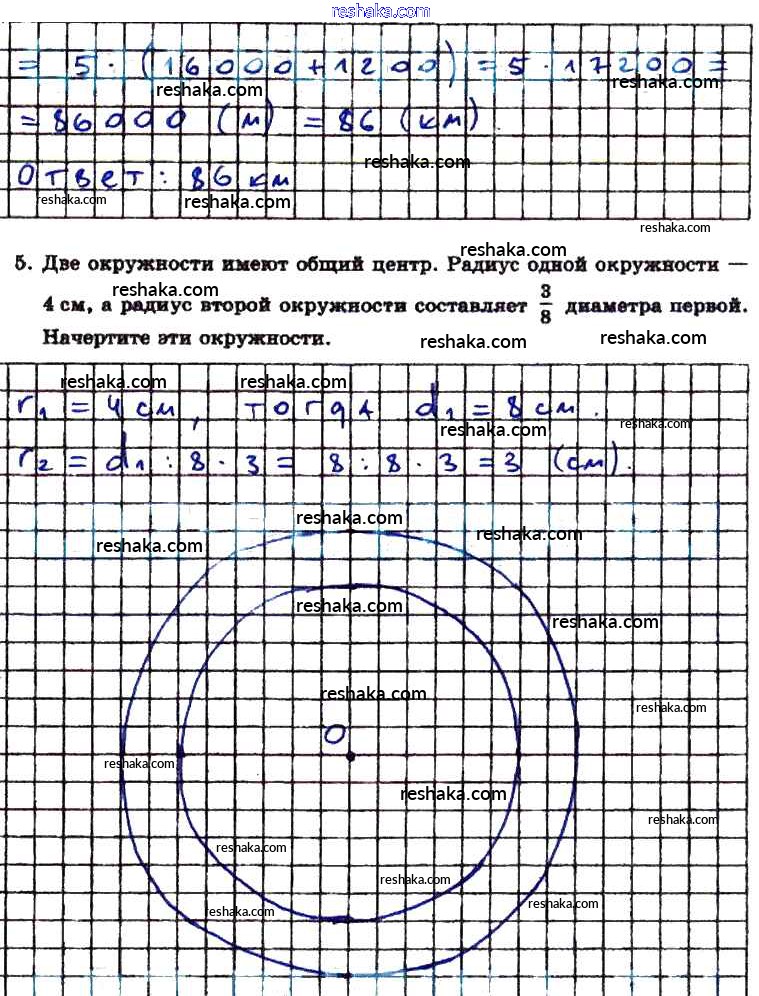 reshaka.com
= 5 · (16000+1200) = 5 · 17200 =
reshaka.com
reshaka.com
= 86000 (м) = 86 (км).
reshaka.com
Ответ: 86 км
reshaka.com
reshaka.com
reshaka.com
reshaka.com
5. Две окружности имеют общий центр. Радиус одной окружности —
reshaka.com
4 см, а радиус второй окружности составляет 3/8 диаметра первой.
Начертите эти окружности.
reshaka.com
reshaka.com
reshaka.com
reshaka.com
r₁ = 4 см, тогда d₁ = 8 см.
reshaka.com
reshaka.com
r₂ = d₁ : 8 · 3 = 8 : 8 · 3 = 3 (см).
reshaka.com
reshaka.com
reshaka.com
reshaka.com
reshaka.com
reshaka.com
reshaka.com
O
reshaka.com
reshaka.com
reshaka.com
reshaka.com
reshaka.com
reshaka.com
reshaka.com